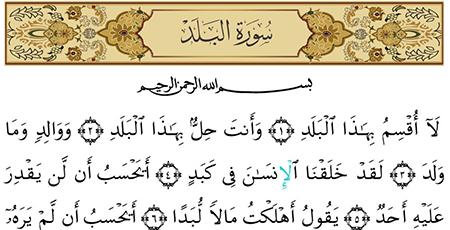 سُورَةُ البَلَدِ
بِسْمِ اللهِ الرَّحْمٰنِ الرَّحِيمِ
لَآ أُقْسِمُ بِهَٰذَا الْبَلَدِ ﴿١﴾ وَأَنتَ حِلٌّۢ بِهَٰذَا الْبَلَدِ ﴿٢﴾ وَوَالِدٍ وَمَا
وَلَدَ ﴿٣﴾ لَقَدْ خَلَقْنَا الْإِنسَٰنَ فِى كَبَدٍ ﴿٤﴾ أَيَحْسَبُ أَن لَّن يَقْدِرَ
عَلَيْهِ أَحَدٌ ﴿٥﴾ يَقُولُ أَهْلَكْتُ مَالًا لُّبَدًا ﴿٦﴾ أَيَحْسَبُ أَن لَّمْ يَرَهُۥٓ